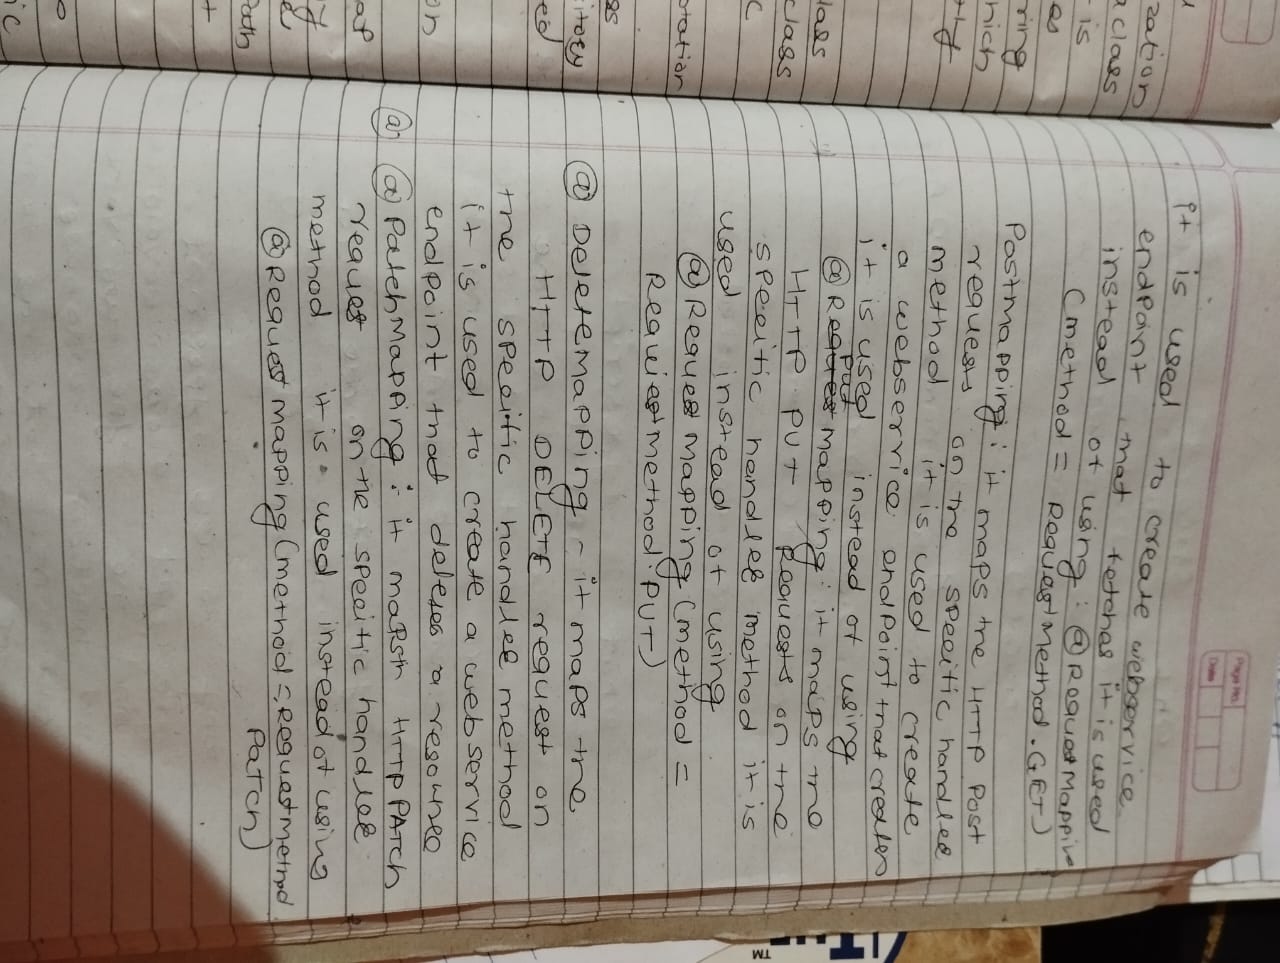 Page No
Date
It is used to create webservice
endpoint that fetches it is used
instead of using: @RequestMapping
(method = RequestMethod.GET)
PostMapping: it maps the HTTP Post
requests on the speific handler
method it is used to create
a webservice endpoint that creates
it is used instead of using
@Put Mapping: it maps the
HTTP PUT Requests on the
speific handler method it is
used instead of using
@Request mapping (method =
Request method.PUT)
@ DeleteMapping - it maps the
HTTP DELETE request on
the speific handler method
it is used to create a webservice
endpoint that deletes a resource
@ @ PatchMapping: it maps HTTP PATCH
request on the speific handler
method it is used instead of using
@Request mapping (method = Requestmethod
Patch)
zation
a class
is
ring
hich
lass
class
otation
itory
Path
TM